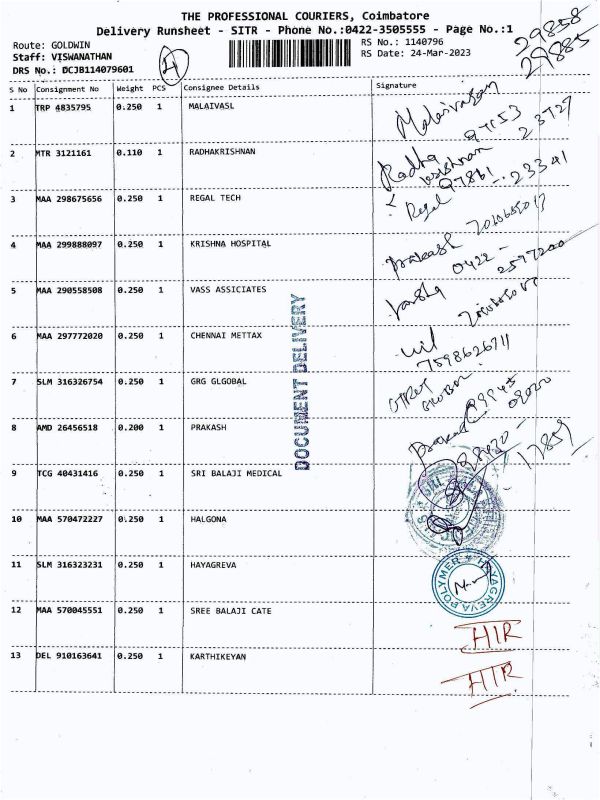 THE PROFESSIONAL COURIERS, Coimbatore
Delivery Runsheet - SITR - Phone No.:0422-3505555 - Page No.:1
29858
29885
Route: GOLDWIN
RS No.: 1140796
Staff: VISWANATHAN
RS Date: 24-Mar-2023
DRS No.: DCJB114079601
4
S No Consignment No Weight PCS Consignee Details Signature
1 TRP 4835795 0.250 1 MALAIVASL
Malaivasan
2 MTR 3121161 0.110 1 RADHAKRISHNAN
23727
Radha
krishnan
97861 - 23341
3 MAA 298675656 0.250 1 REGAL TECH
Regal
4 MAA 299888097 0.250 1 KRISHNA HOSPITAL
Prakash
0422 -
2597200
5 MAA 290558508 0.250 1 VASS ASSICIATES
6 MAA 297772020 0.250 1 CHENNAI METTAX
7598626711
7 SLM 316326754 0.250 1 GRG GLGOBAL
8 AMD 26456518 0.200 1 PRAKASH
Prakash
- 17859
9 TCG 40431416 0.250 1 SRI BALAJI MEDICAL
10 MAA 570472227 0.250 1 HALGONA
11 SLM 316323231 0.250 1 HAYAGREVA
HAYAGREVA POLYMER
12 MAA 570045551 0.250 1 SREE BALAJI CATE
HIR
13 DEL 910163641 0.250 1 KARTHIKEYAN
HIR
DOCUMENT DELIVERY